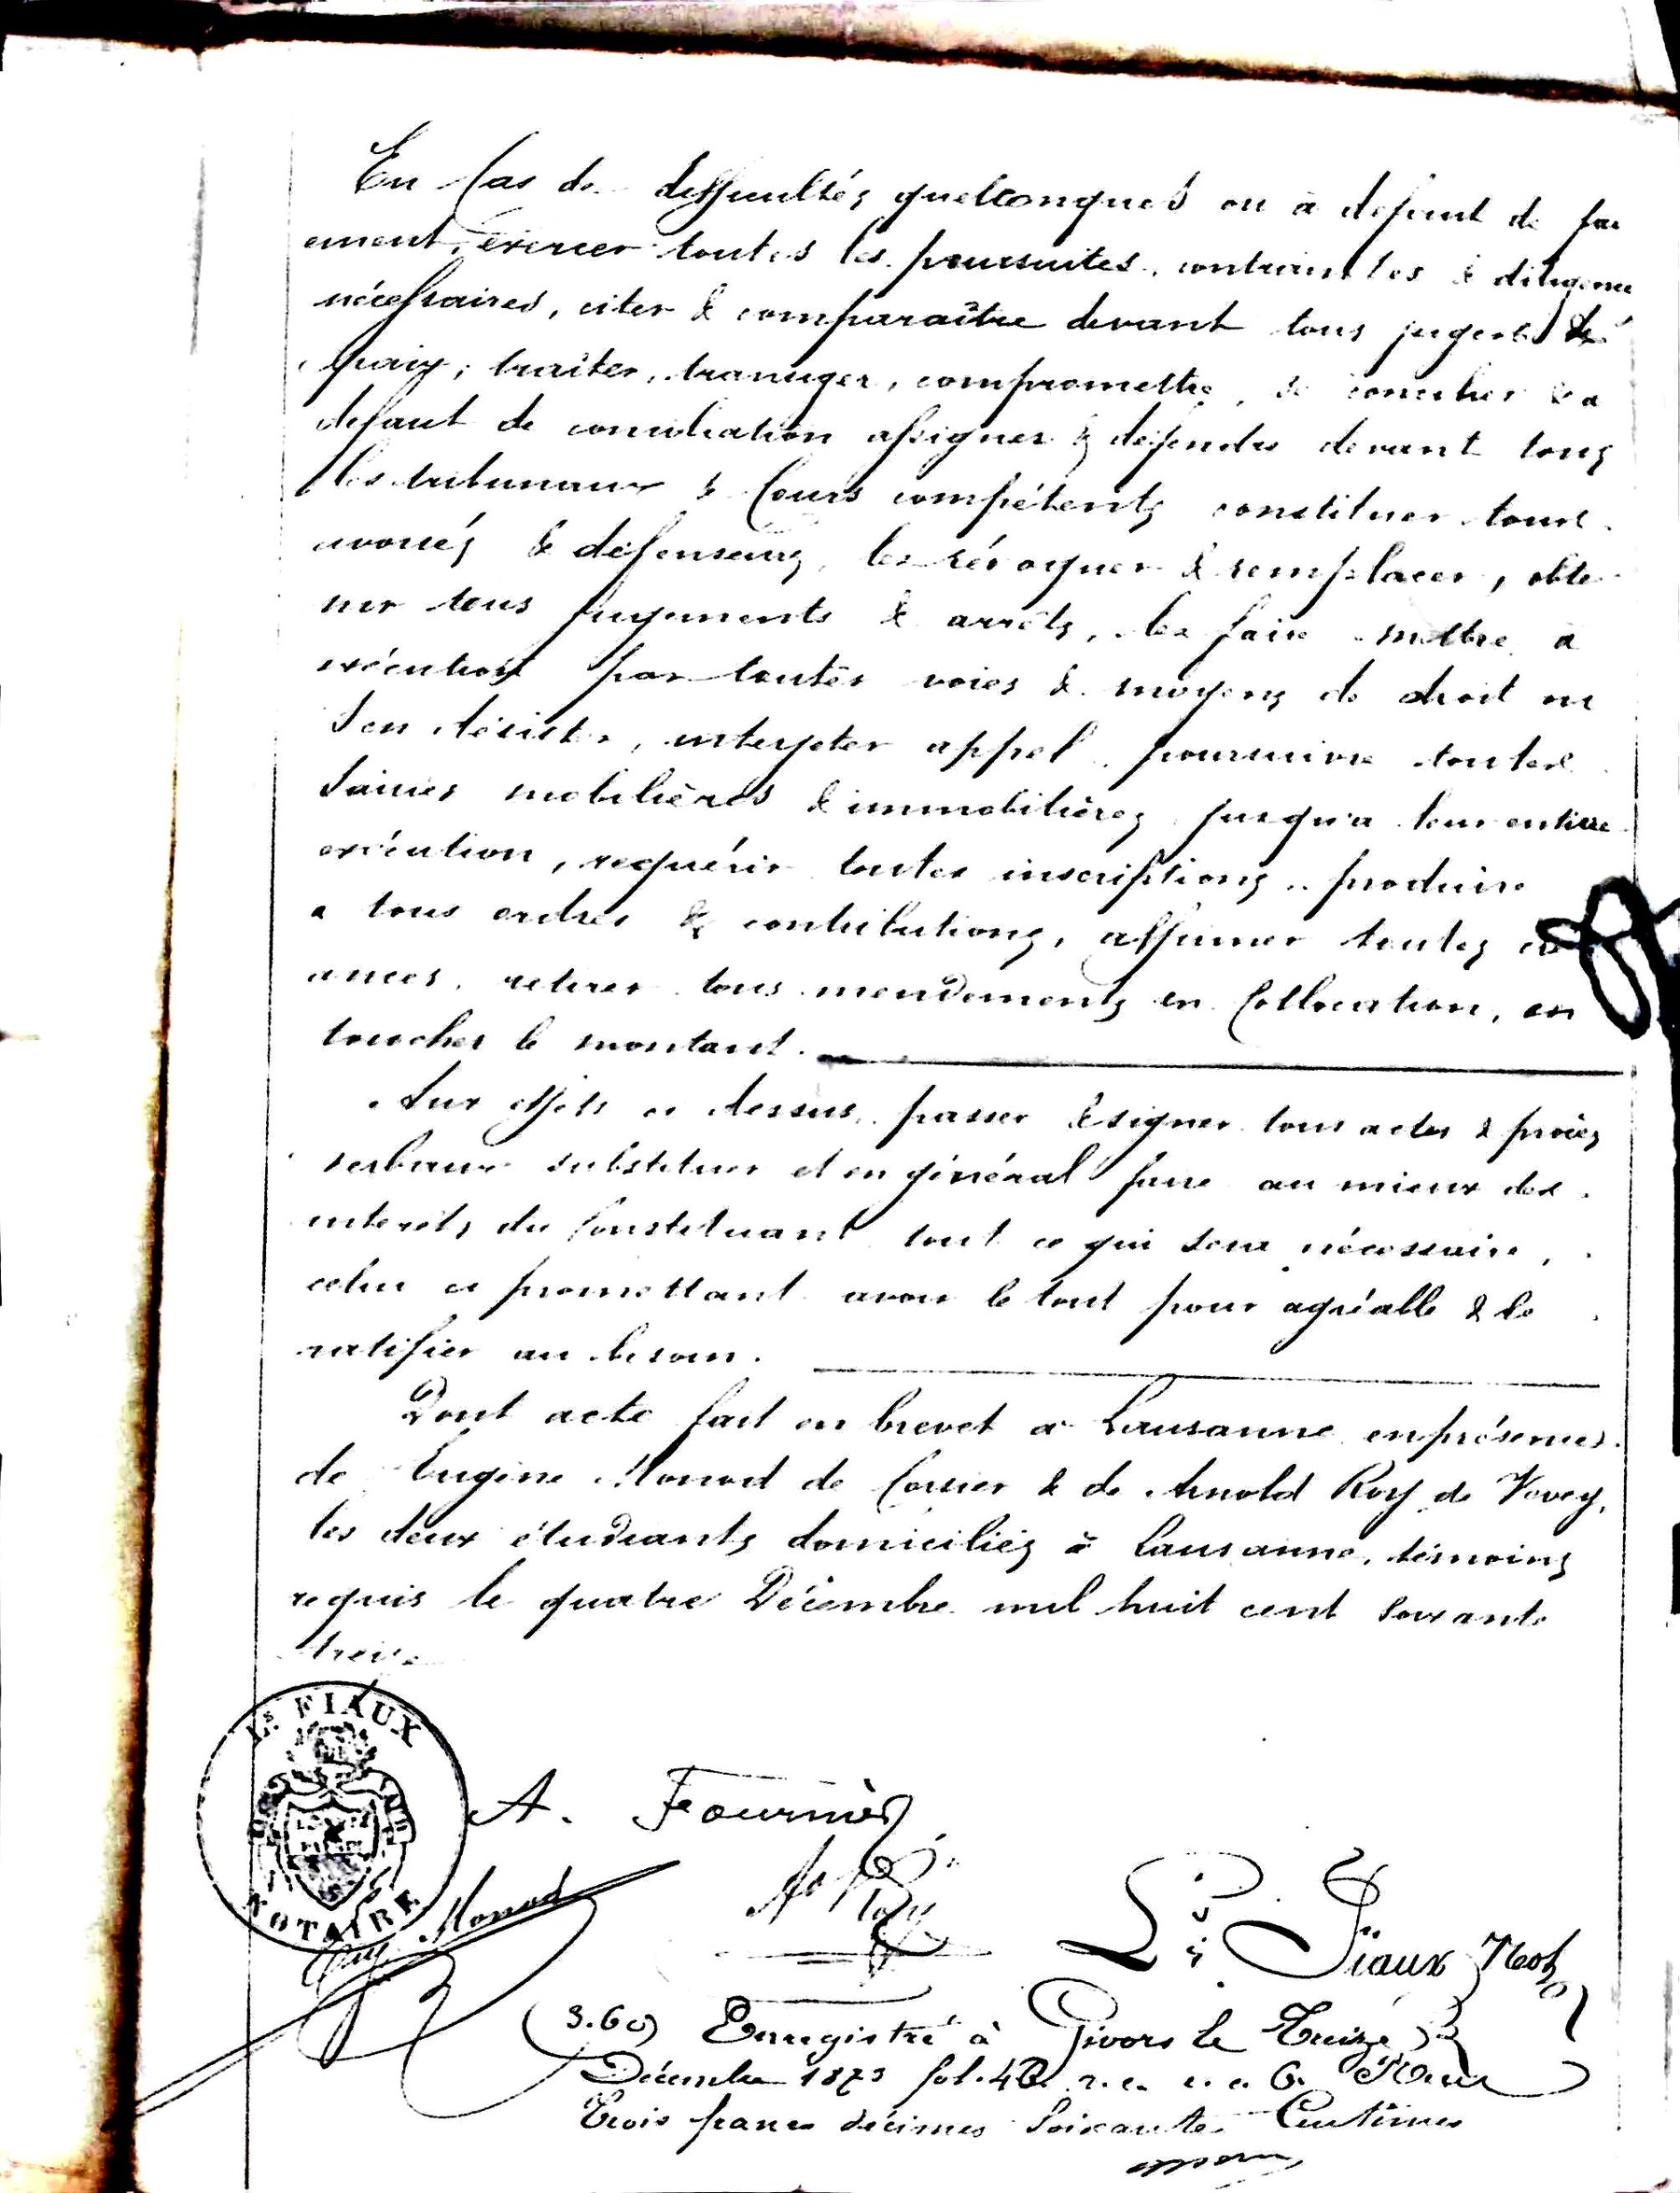 En Cas de difficultés quelconques ou à défaut de pai
ement, exercer toutes les poursuites, contraintes & diligence
nécessaires, citer & comparaître devant tous juges de
paix, traiter, transiger, compromettre, se concilier & a
défaut de conciliation assigner & défendre devant tous
les tribunaux & Cours compétents constituer tous
avoués & défenseurs, les révoquer & remplacer, obte
nir tous jugements & arrêts, les faire mettre a
exécution par toutes voies & moyens de droit ou
s'en désister, interjeter appel, poursuivre toutes
saisies mobilières & immobilières jusqu'a leur entière
exécution, requérir toutes inscriptions, produire
a tous ordres & contributions, affirmer toutes cré
ances, retirer tous mendements en Collocation, en
toucher le montant.
Aux effets ci dessus, passer & signer tous actes & procès
verbaux substituer et en général faire au mieux des
interets du Constituant tout ce qui sera nécessaire,
celui ci promettant avoir le tout pour agréable & le
ratifier au besoin.
Dont acte fait en brevet a Lausanne en présences
de Eugène Monod de Corsier & de Arnold Roy de Vevey,
les deux étudiants domiciliés à Lausanne, témoins
requis le quatre Décembre mil huit cent soixante
treize
Ls. FIAUX
NOTAIRE
A. Fournier
Eug. Monod
Ad Roy
Ls Fiaux Not
(3.60) Enregistré à Givors le Treize
Décembre 1873 fol. 42 r. c. Reçu
Trois francs décimes Soixante Centimes